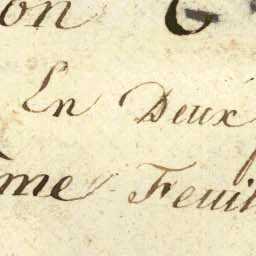 on C
En Deux
me Feuil